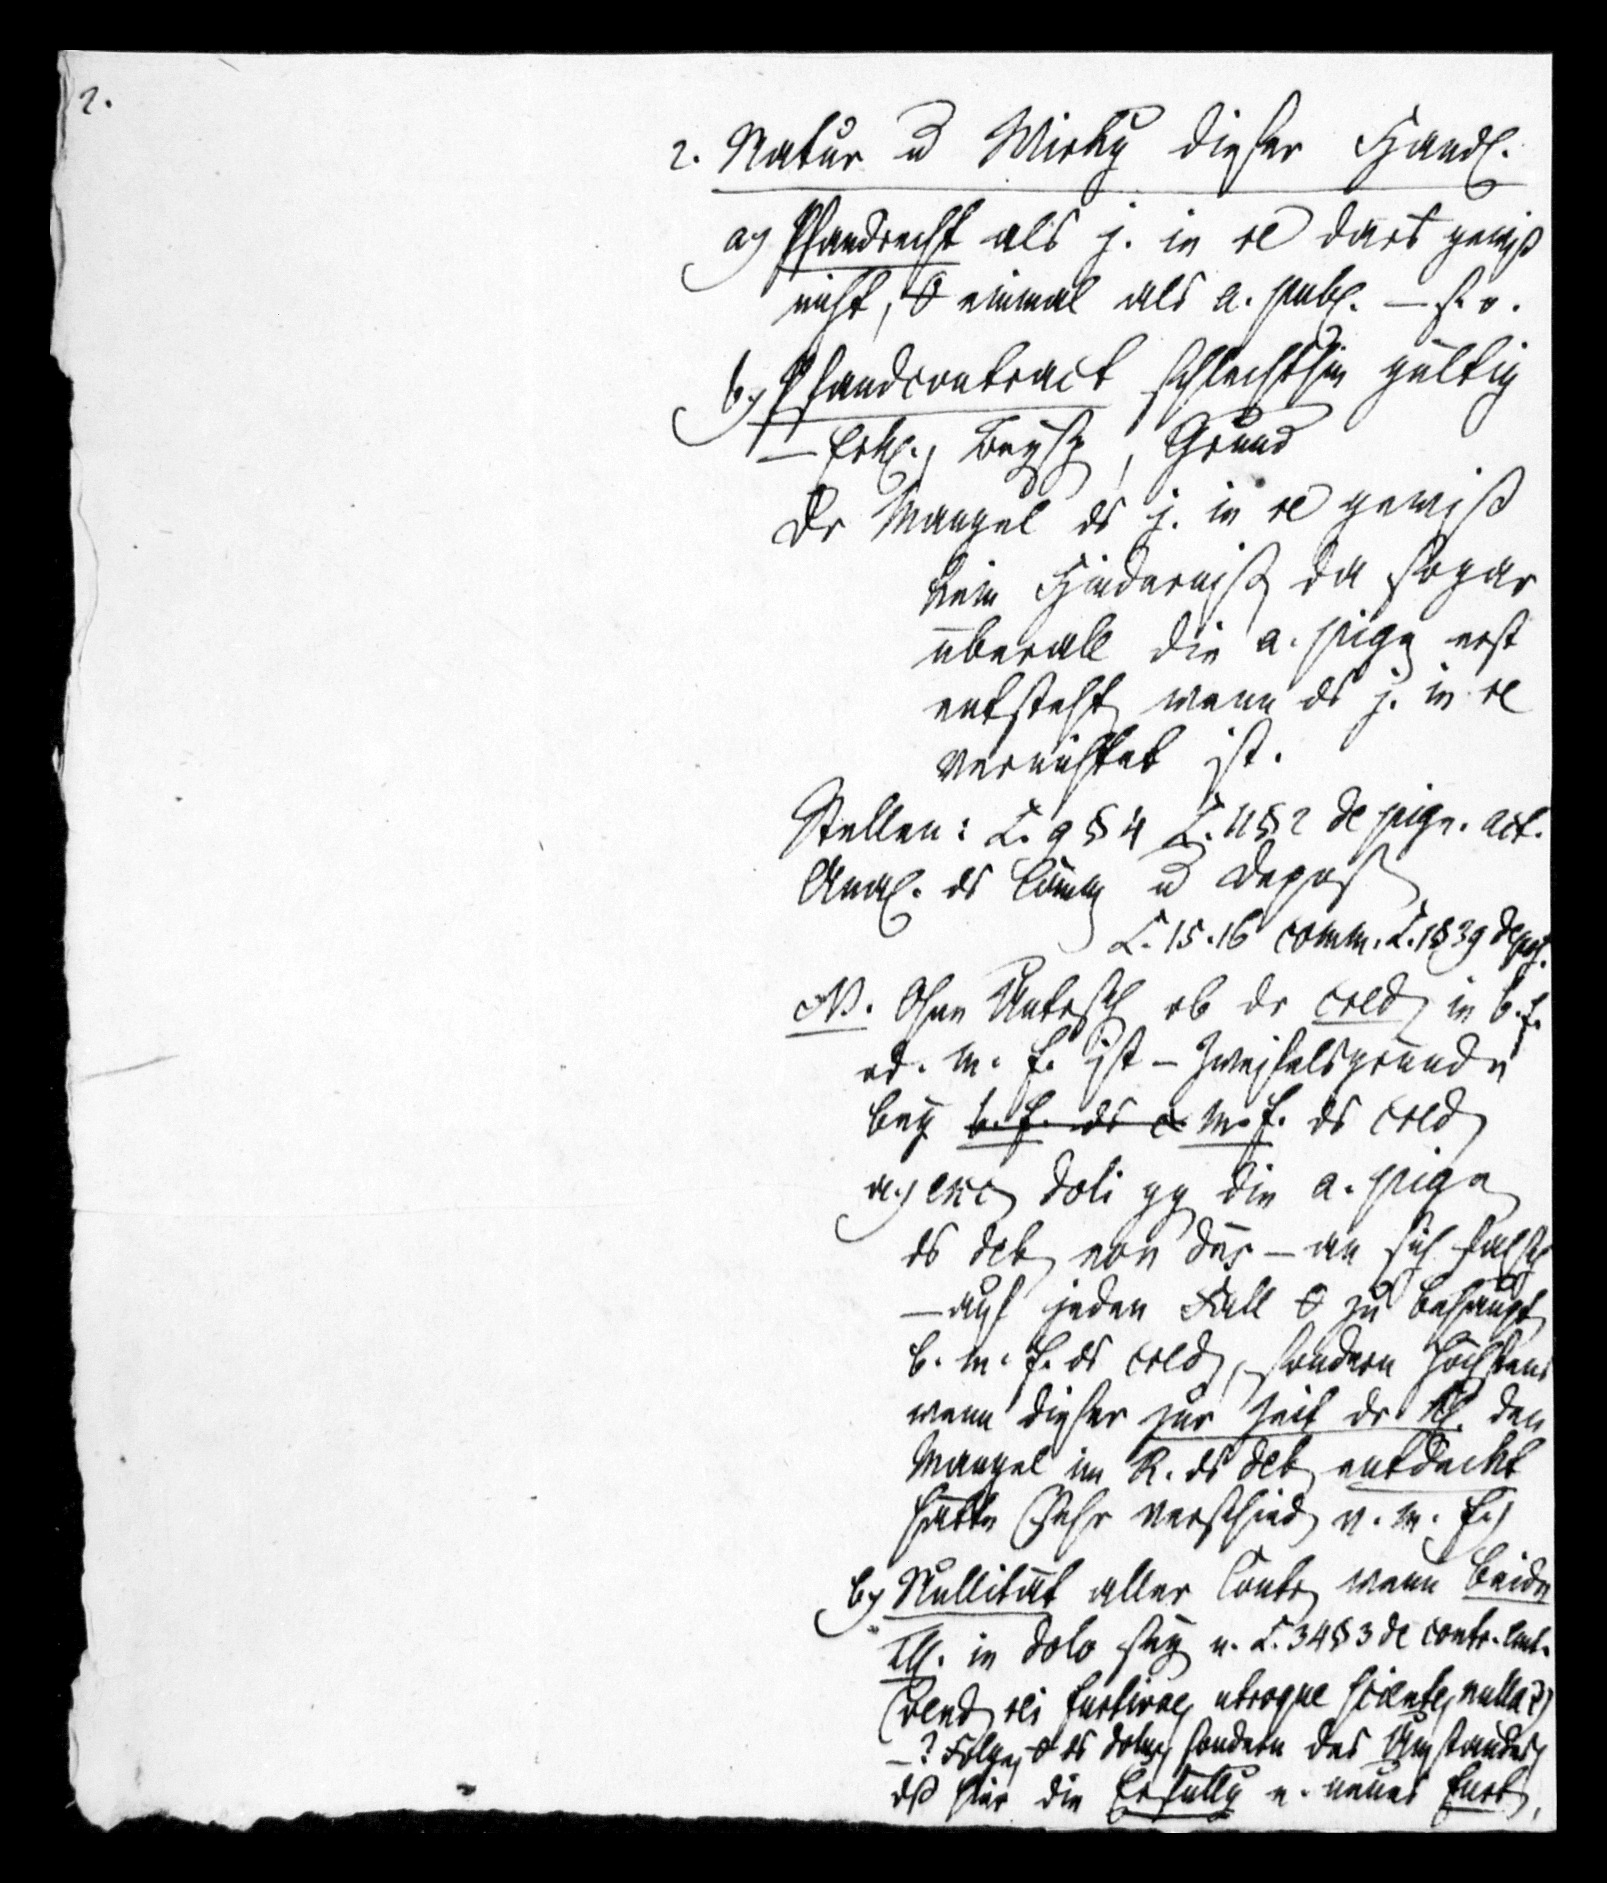 2.
2. Natur u Wirkg dieser Handl.
a) Pfandrecht als j. in re darf gewiß
nicht, 0 einmal als a. publ. — s. o.
b) Pfandcontract schlechthin gültig
— Erkl., Beysp, Grund
Dr Mangel ds j. in re gewiß
kein Hinderniß da sogar
überall die a. pign erst
entsteht wenn ds j. in re
vernichtet ist.
Stellen: L. 9 § 4 L. 11 § 2 de pign. act.
Anal. ds Comm u Depos
L. 15. 16 comm. L. 1 § 39 depos.
NB. Ohne Untersch ob dr cred in b. f.
od. m. f. ist — Zweifelsgründe
bey b. f. ds c m. f. ds cred
a) exc doli gg die a. pign
ds deb von dns — an sich falsch
— auf jeden Fall 0 zu behaupt
b. m. f. ds cred, sondern höchstens
wenn dieser zur Zeit dr Kl. den
Mangel im R. ds deb entdeckt
hätte (sehr verschied v. m. f.)
b) Nullität aller Contr wenn beide
Th. in dolo sey n. L. 34 § 3 de contr. emt.
(vend rei furtivae utroque sciente, nulla?)
— ? Folge, 0 ds dolus, sondern des Umstandes,
dß hier die Erfüllg e. neues furt,